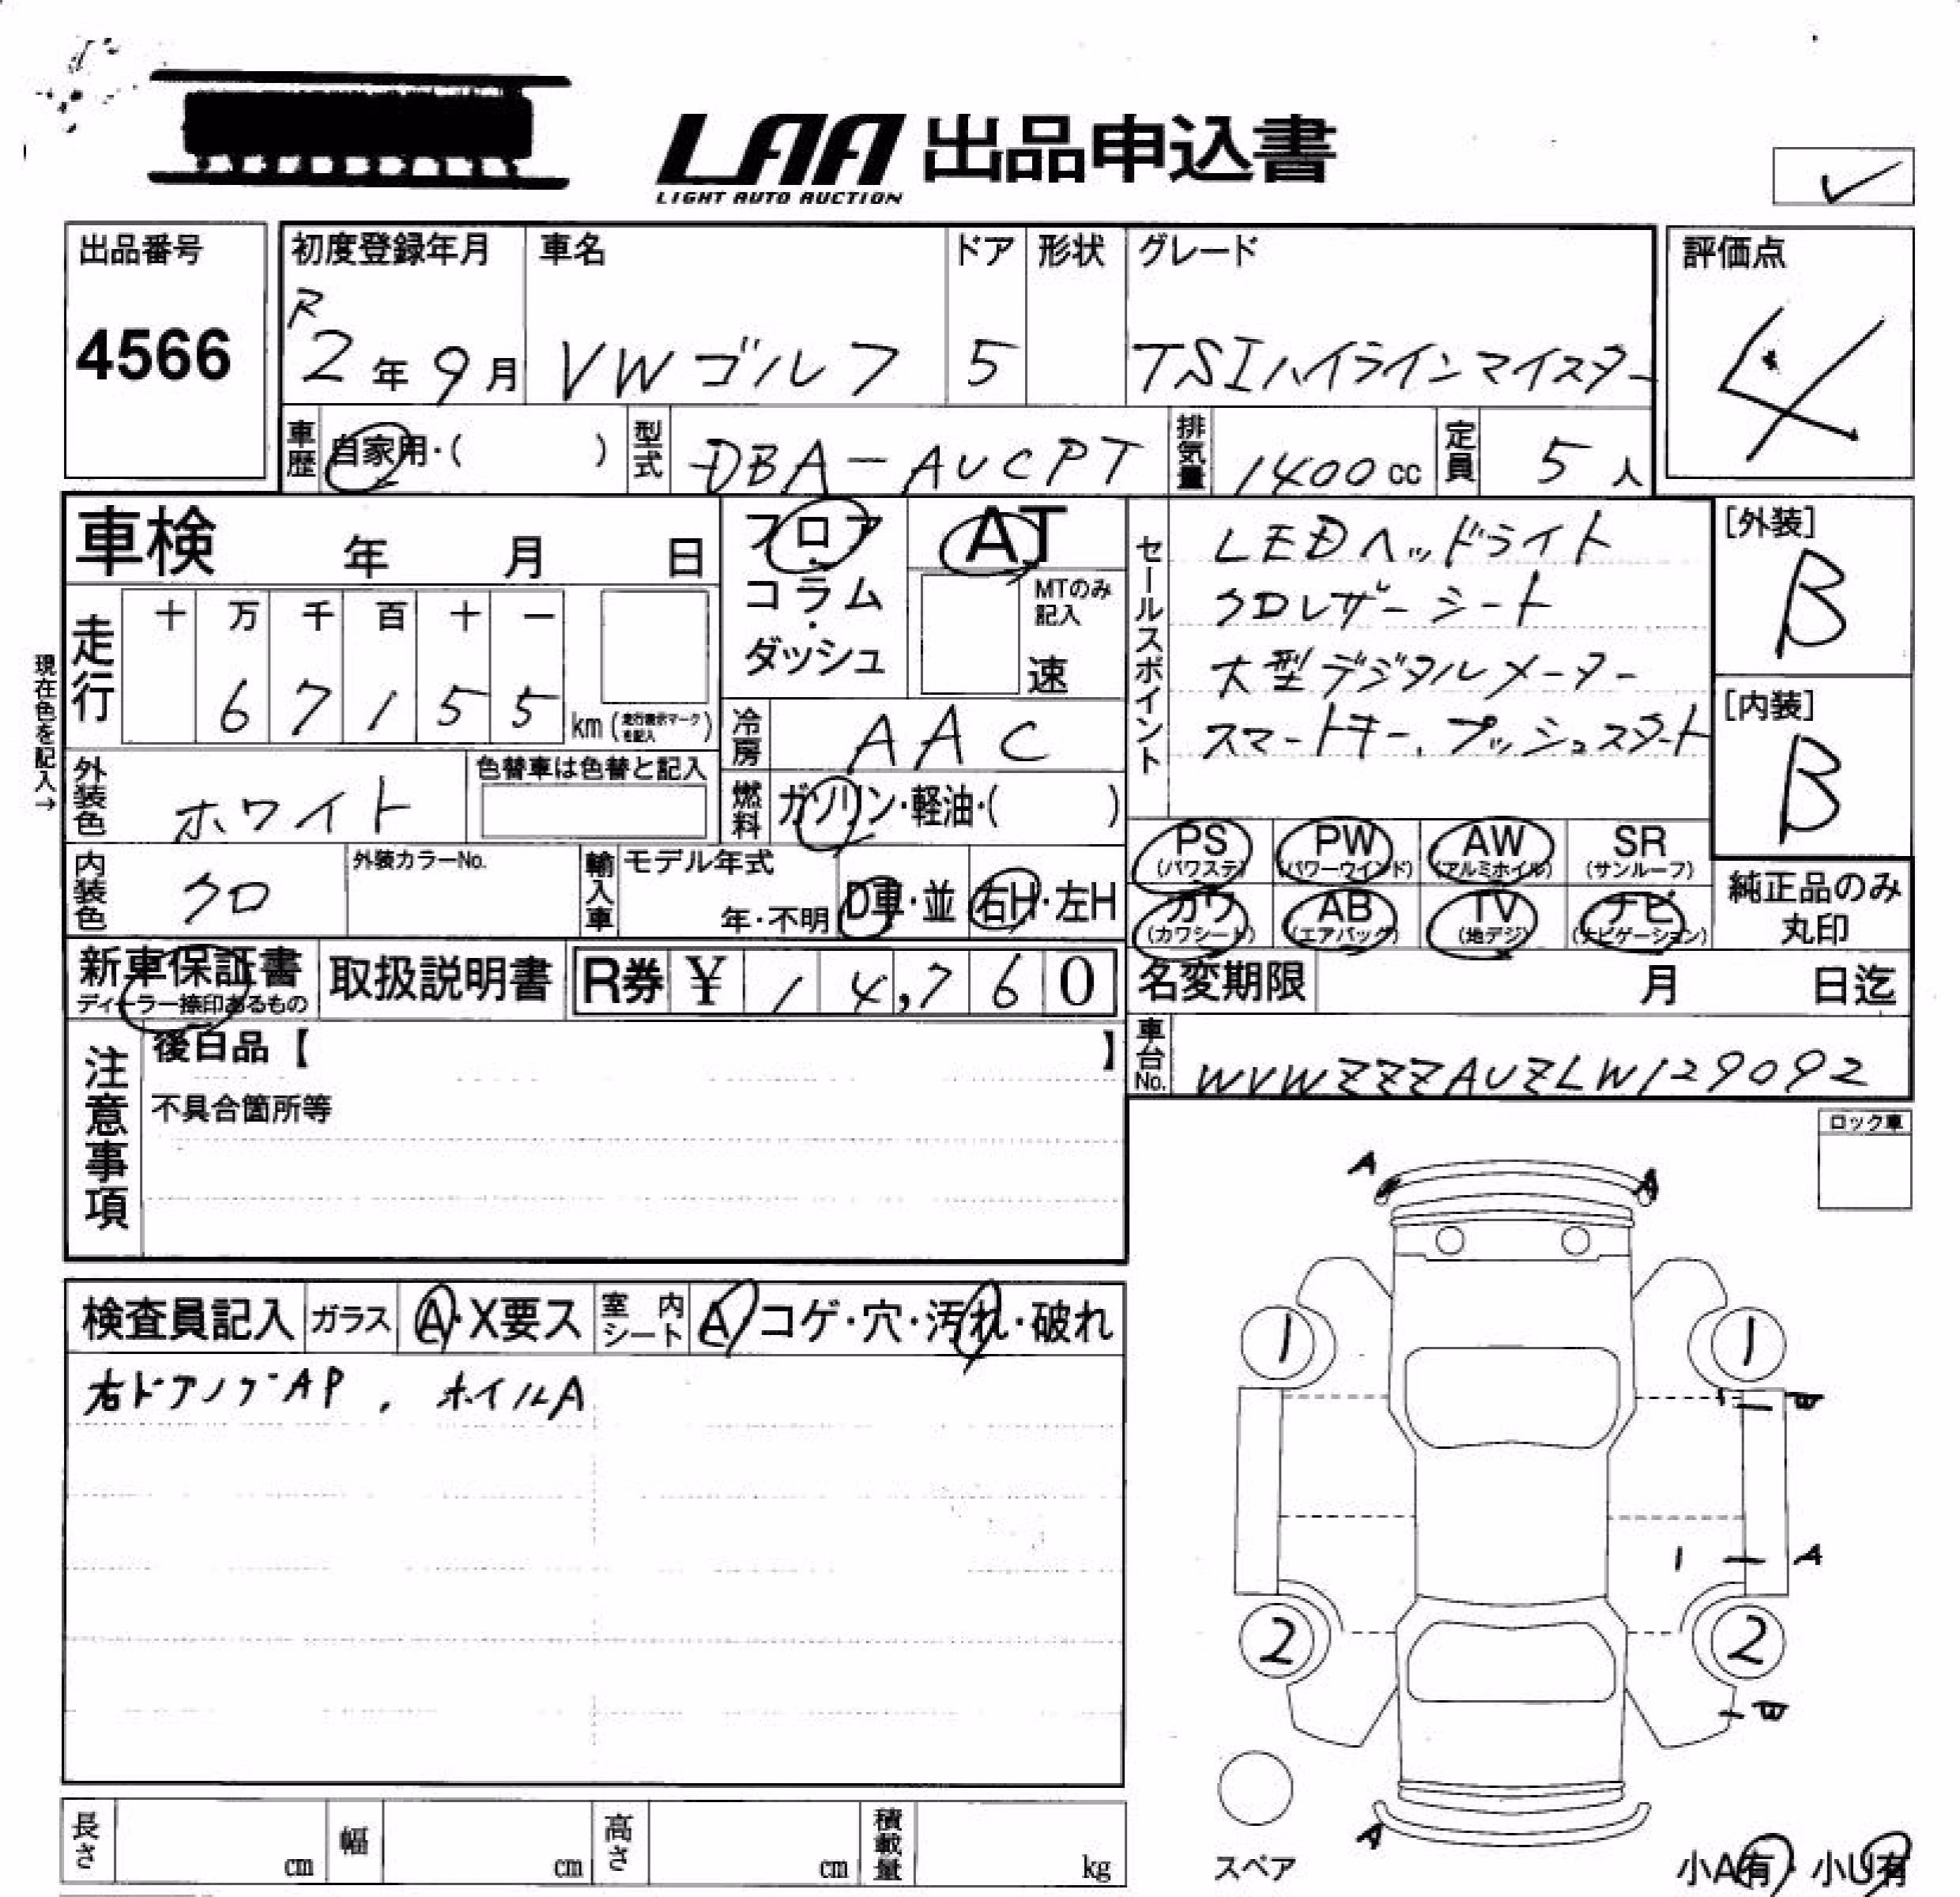 LAA 出品申込書
LIGHT AUTO AUCTION
✓
出品番号
4566
初度登録年月
R
2年9月
車名
VWゴルフ
ドア
5
形状
グレード
TSIハイラインマイスター
評価点
4
車歴 自家用・( )
型式 DBA-AUCPT
排気量 1400cc
定員 5人
車検 年 月 日
フロア・コラム・ダッシュ
AT
MTのみ記入
速
セールスポイント
LEDヘッドライト
クロレザーシート
大型デジタルメーター
スマートキー、プッシュスタート
[外装]
B
[内装]
B
現在色を記入→
走行
十 万 千 百 十 一
6 7 1 5 5
km (走行表示マークを記入)
冷房 AAC
燃料 ガソリン・軽油・( )
外装色 ホワイト
色替車は色替と記入
内装色 クロ
外装カラーNo.
輸入車
モデル年式
年・不明
D車・並
右H・左H
PS (パワステ)
PW (パワーウインド)
AW (アルミホイル)
SR (サンルーフ)
カワ (カワシート)
AB (エアバック)
TV (地デジ)
ナビ (ナビゲーション)
純正品のみ
丸印
新車保証書
ディーラー捺印あるもの
取扱説明書
R券 ¥ 14,760
名変期限 月 日迄
車台No. WVWZZZAUZLW129092
注意事項
後日品【 】
不具合箇所等
ロック車
検査員記入
ガラス A・X要ス
室内シート A コゲ・穴・汚れ・破れ
右ドアノブAP, ホイルA
A
A
1
1
A
2
2
A
スペア
小A有・小U有
長さ cm
幅 cm
高さ cm
積載量 kg